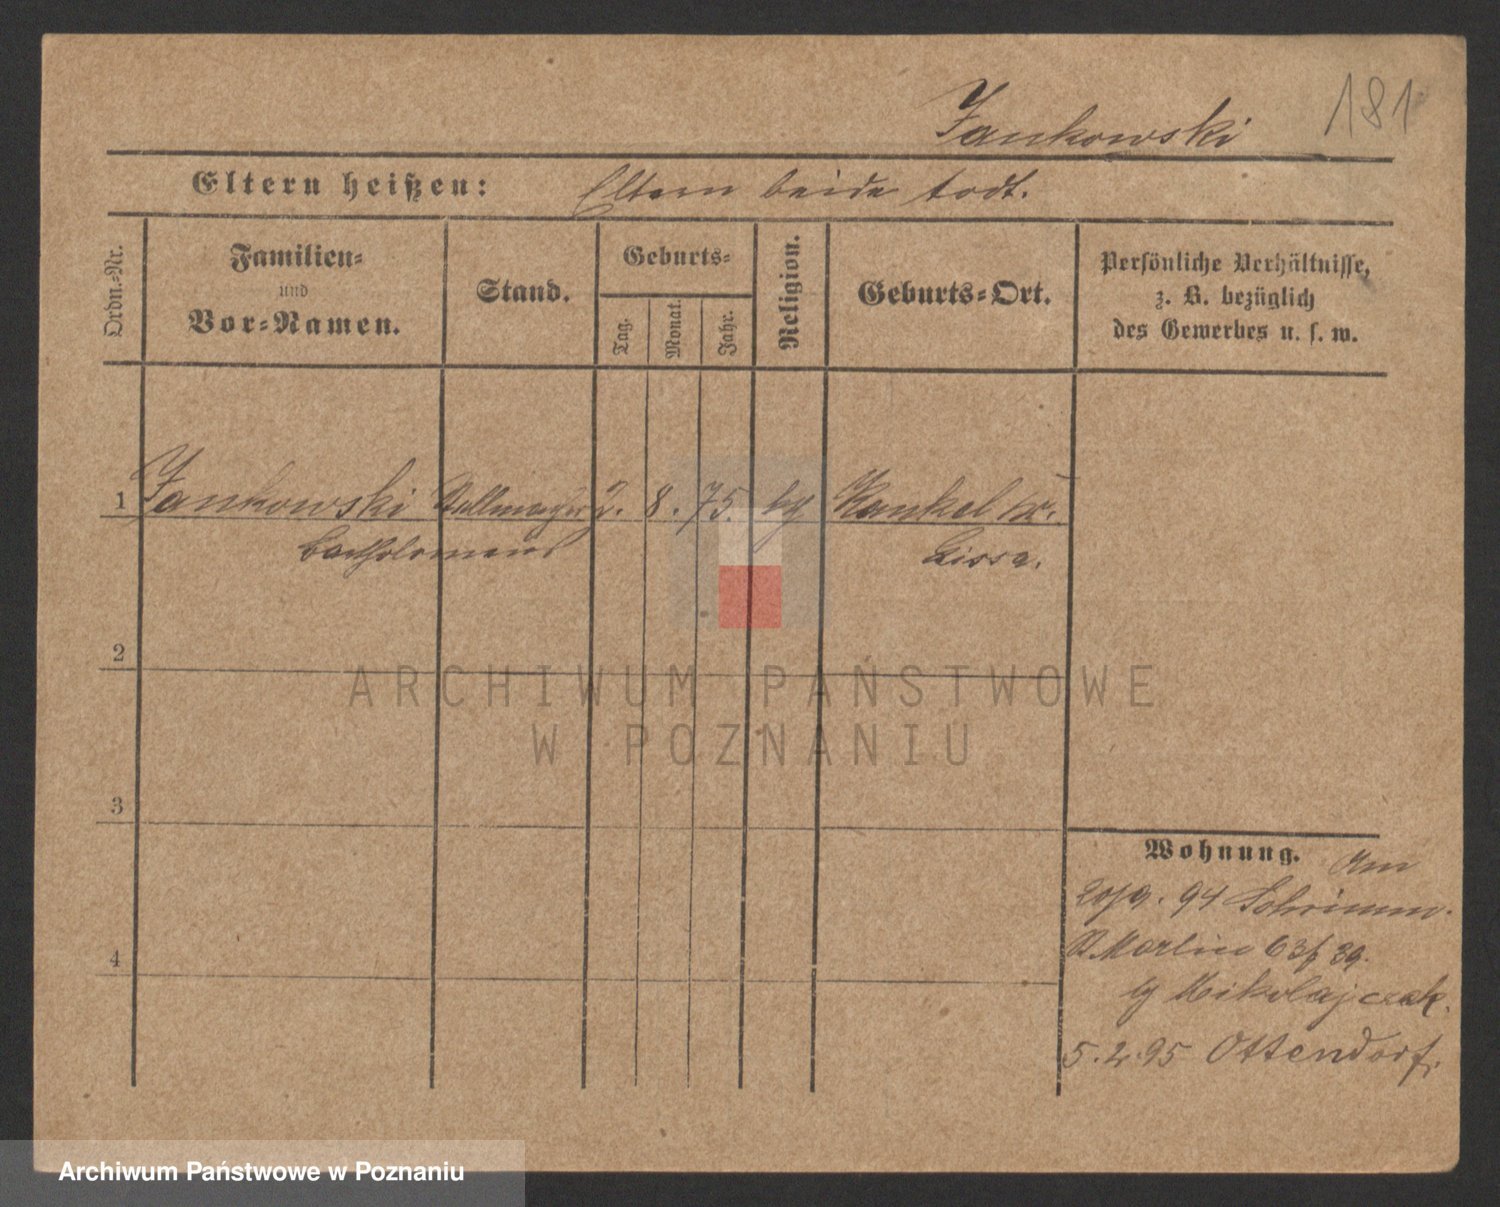 Jankowski
181
Eltern heißen: Eltern beide todt.
Ordn.-Nr.
Familien-
und
Vor-Namen.
Stand.
Geburts-
Tag.
Monat.
Jahr.
Religion.
Geburts-Ort.
Persönliche Verhältnisse,
z. B. bezüglich
des Gewerbes u. s. w.
1 Jankowski Stellmacher 2. 8. 75. kg Kankel Kr.
Bartholomeus Lissa.
2
3
4
Wohnung. Am
20/9. 94 Schrimm.
St Martin 63/ 39.
by Mikolajczak.
5.2.95 Ottendorf.
ARCHIWUM PAŃSTWOWE
W POZNANIU
Archiwum Państwowe w Poznaniu